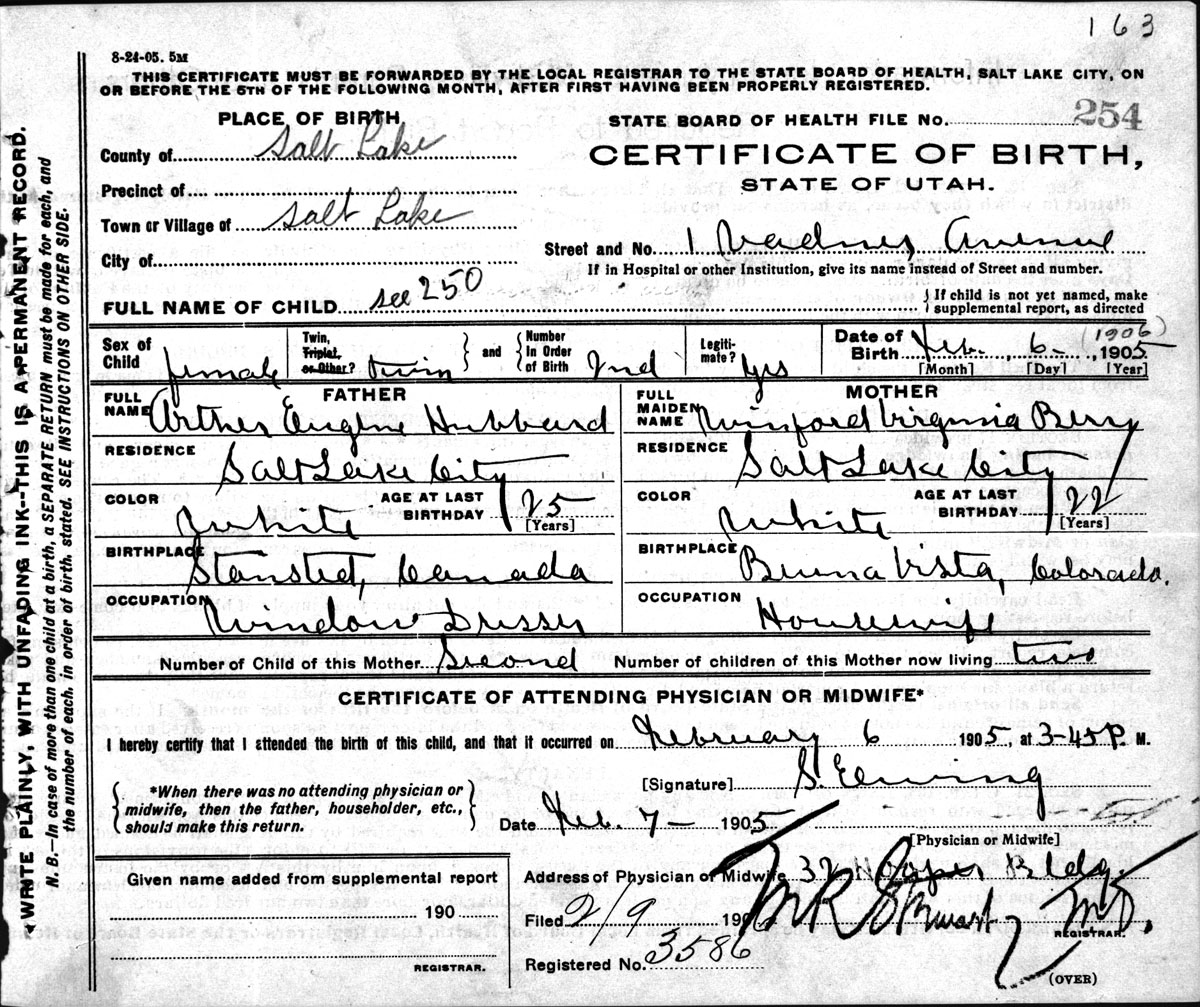 163
8-24-05. 5M
THIS CERTIFICATE MUST BE FORWARDED BY THE LOCAL REGISTRAR TO THE STATE BOARD OF HEALTH, SALT LAKE CITY, ON
OR BEFORE THE 5TH OF THE FOLLOWING MONTH, AFTER FIRST HAVING BEEN PROPERLY REGISTERED.
PLACE OF BIRTH,
STATE BOARD OF HEALTH FILE No. 254
County of Salt Lake
CERTIFICATE OF BIRTH,
STATE OF UTAH.
Precinct of
Town or Village of Salt Lake
Street and No. 1 Avenue
City of
If in Hospital or other Institution, give its name instead of Street and number.
FULL NAME OF CHILD see 250
{ If child is not yet named, make
supplemental report, as directed
Sex of Child female
Twin, Triplet, or Other? twin } and { Number In Order of Birth 2nd
Legiti-mate? yes
Date of Birth Feb. 6 , 1905 (1906)
[Month] [Day] [Year]
FATHER
FULL NAME Arther Eugene Hubbard
RESIDENCE Salt Lake City
COLOR White
AGE AT LAST BIRTHDAY 25 [Years]
BIRTHPLACE Stansted, Canada
OCCUPATION Window Dresser
MOTHER
FULL MAIDEN NAME Winiford Virginia Berry
RESIDENCE Salt Lake City
COLOR White
AGE AT LAST BIRTHDAY 22 [Years]
BIRTHPLACE Buena Vista, Colorado.
OCCUPATION Housewife
Number of Child of this Mother Second
Number of children of this Mother now living two
CERTIFICATE OF ATTENDING PHYSICIAN OR MIDWIFE*
I hereby certify that I attended the birth of this child, and that it occurred on February 6 1905, at 3-45 P. M.
{ *When there was no attending physician or
midwife, then the father, householder, etc.,
should make this return. }
[Signature] S. Ewing
Date Feb. 7 - 1905
[Physician or Midwife]
Given name added from supplemental report
190
REGISTRAR.
Address of Physician or Midwife Bldg
Filed 2/9 1906 M R Stewart M.D.
REGISTRAR.
Registered No. 3586
(OVER)
WRITE PLAINLY, WITH UNFADING INK--THIS IS A PERMANENT RECORD.
N. B.—In case of more than one child at a birth, a SEPARATE RETURN must be made for each, and
the number of each, in order of birth, stated. SEE INSTRUCTIONS ON OTHER SIDE.